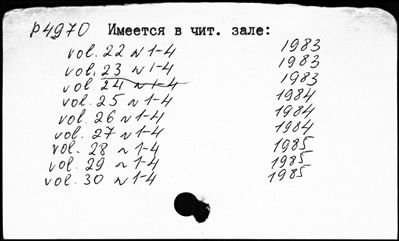 р4970 Имеется в чит. зале:
vol. 22 N 1-4 1983
vol. 23 N 1-4 1983
vol. 24 N 1-4 1983
vol. 25 N 1-4 1984
vol. 26 N 1-4 1984
vol. 27 N 1-4 1984
vol. 28 N 1-4 1985
vol. 29 N 1-4 1985
vol. 30 N 1-4 1985